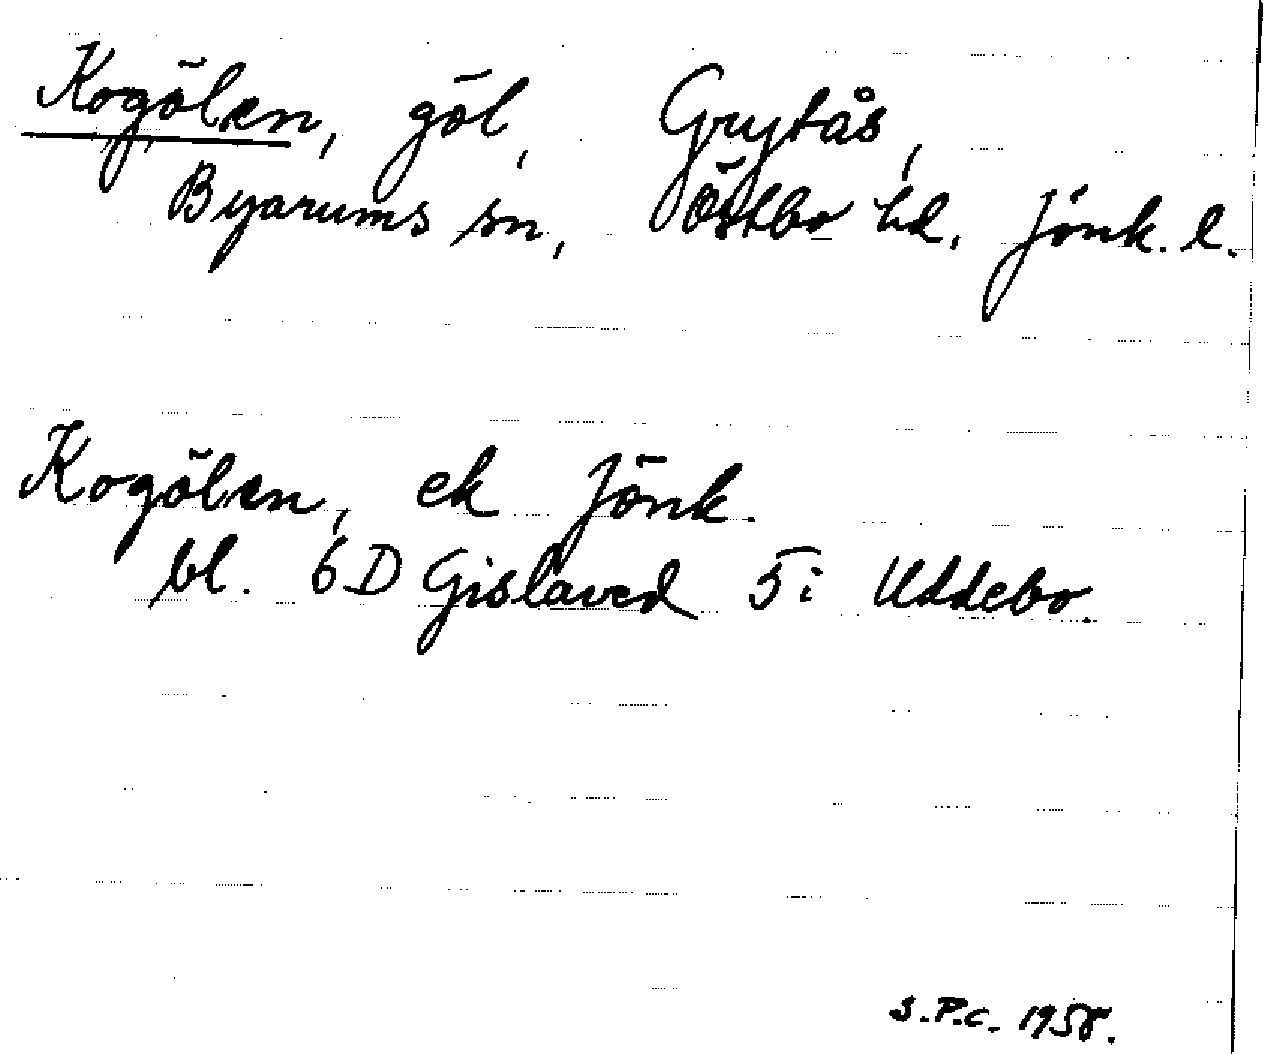 Kogölen, göl, Grytås,
Byarums sn, Östbo hd, Jönk. l.
Kogölen, ek Jönk.
bl. 6D Gislaved 5i Uddebo.
S.P.C. 1958.